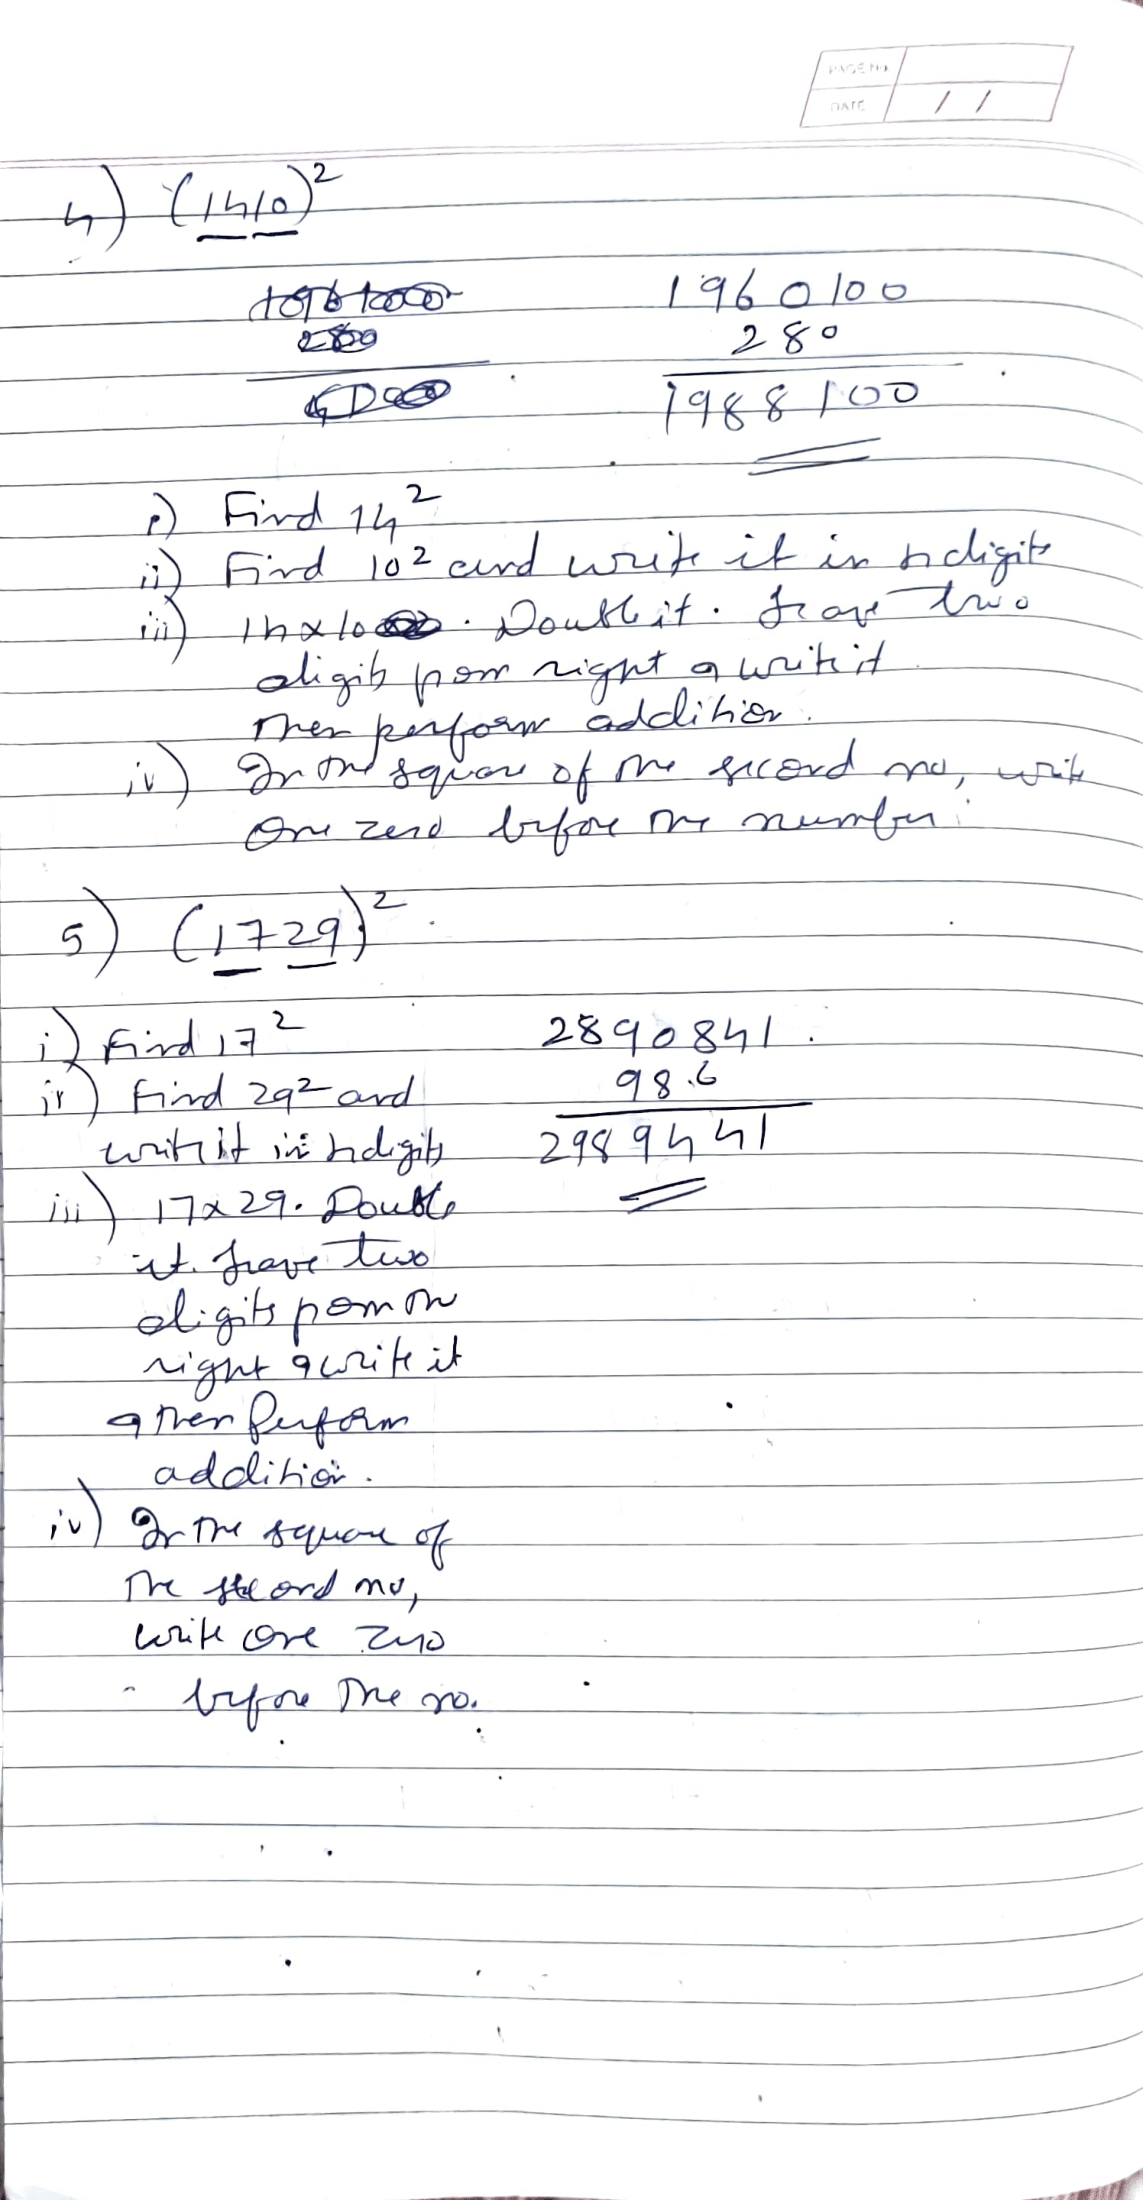 PAGE No.
DATE / /
4) (1410)²
1960100
280
1988100
i) Find 14²
ii) Find 10² and write it in 4 digits
iii) 14x10 . Double it. Leave two
digits from right & write it
Then perform addition.
iv) In the square of the second no, write
One zero before the number.
5) (1729)²
i) Find 17² 2890841.
ii) Find 29² and 98.6
write it in 4 digits 2989441
iii) 17x29. Double
it. Leave two
digits from the
right & write it
& then Perform
addition.
iv) In the square of
the second no,
write one zero
before the no.